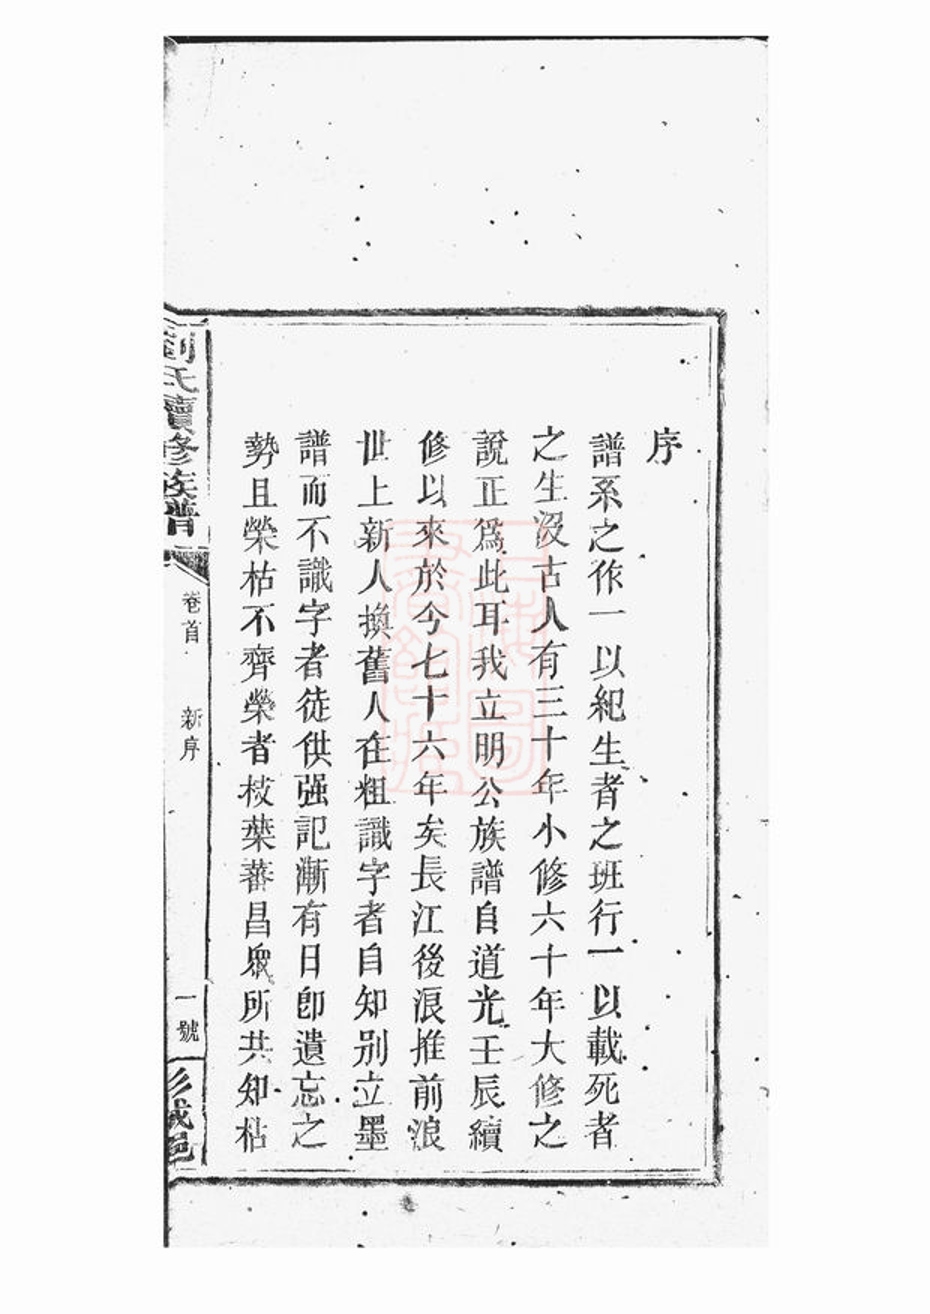 序
譜系之作一以紀生者之班行一以載死者
之生沒古人有三十年小修六十年大修之
說正爲此耳我立明公族譜自道光壬辰續
修以來於今七十六年矣長江後浪推前浪
世上新人換舊人在粗識字者自知別立墨
譜而不識字者徒供强記漸有日卽遺忘之
勢且榮枯不齊榮者枝葉蕃昌衆所共知枯
劉氏續修族譜
卷首
新序
一號
上海圖書館藏